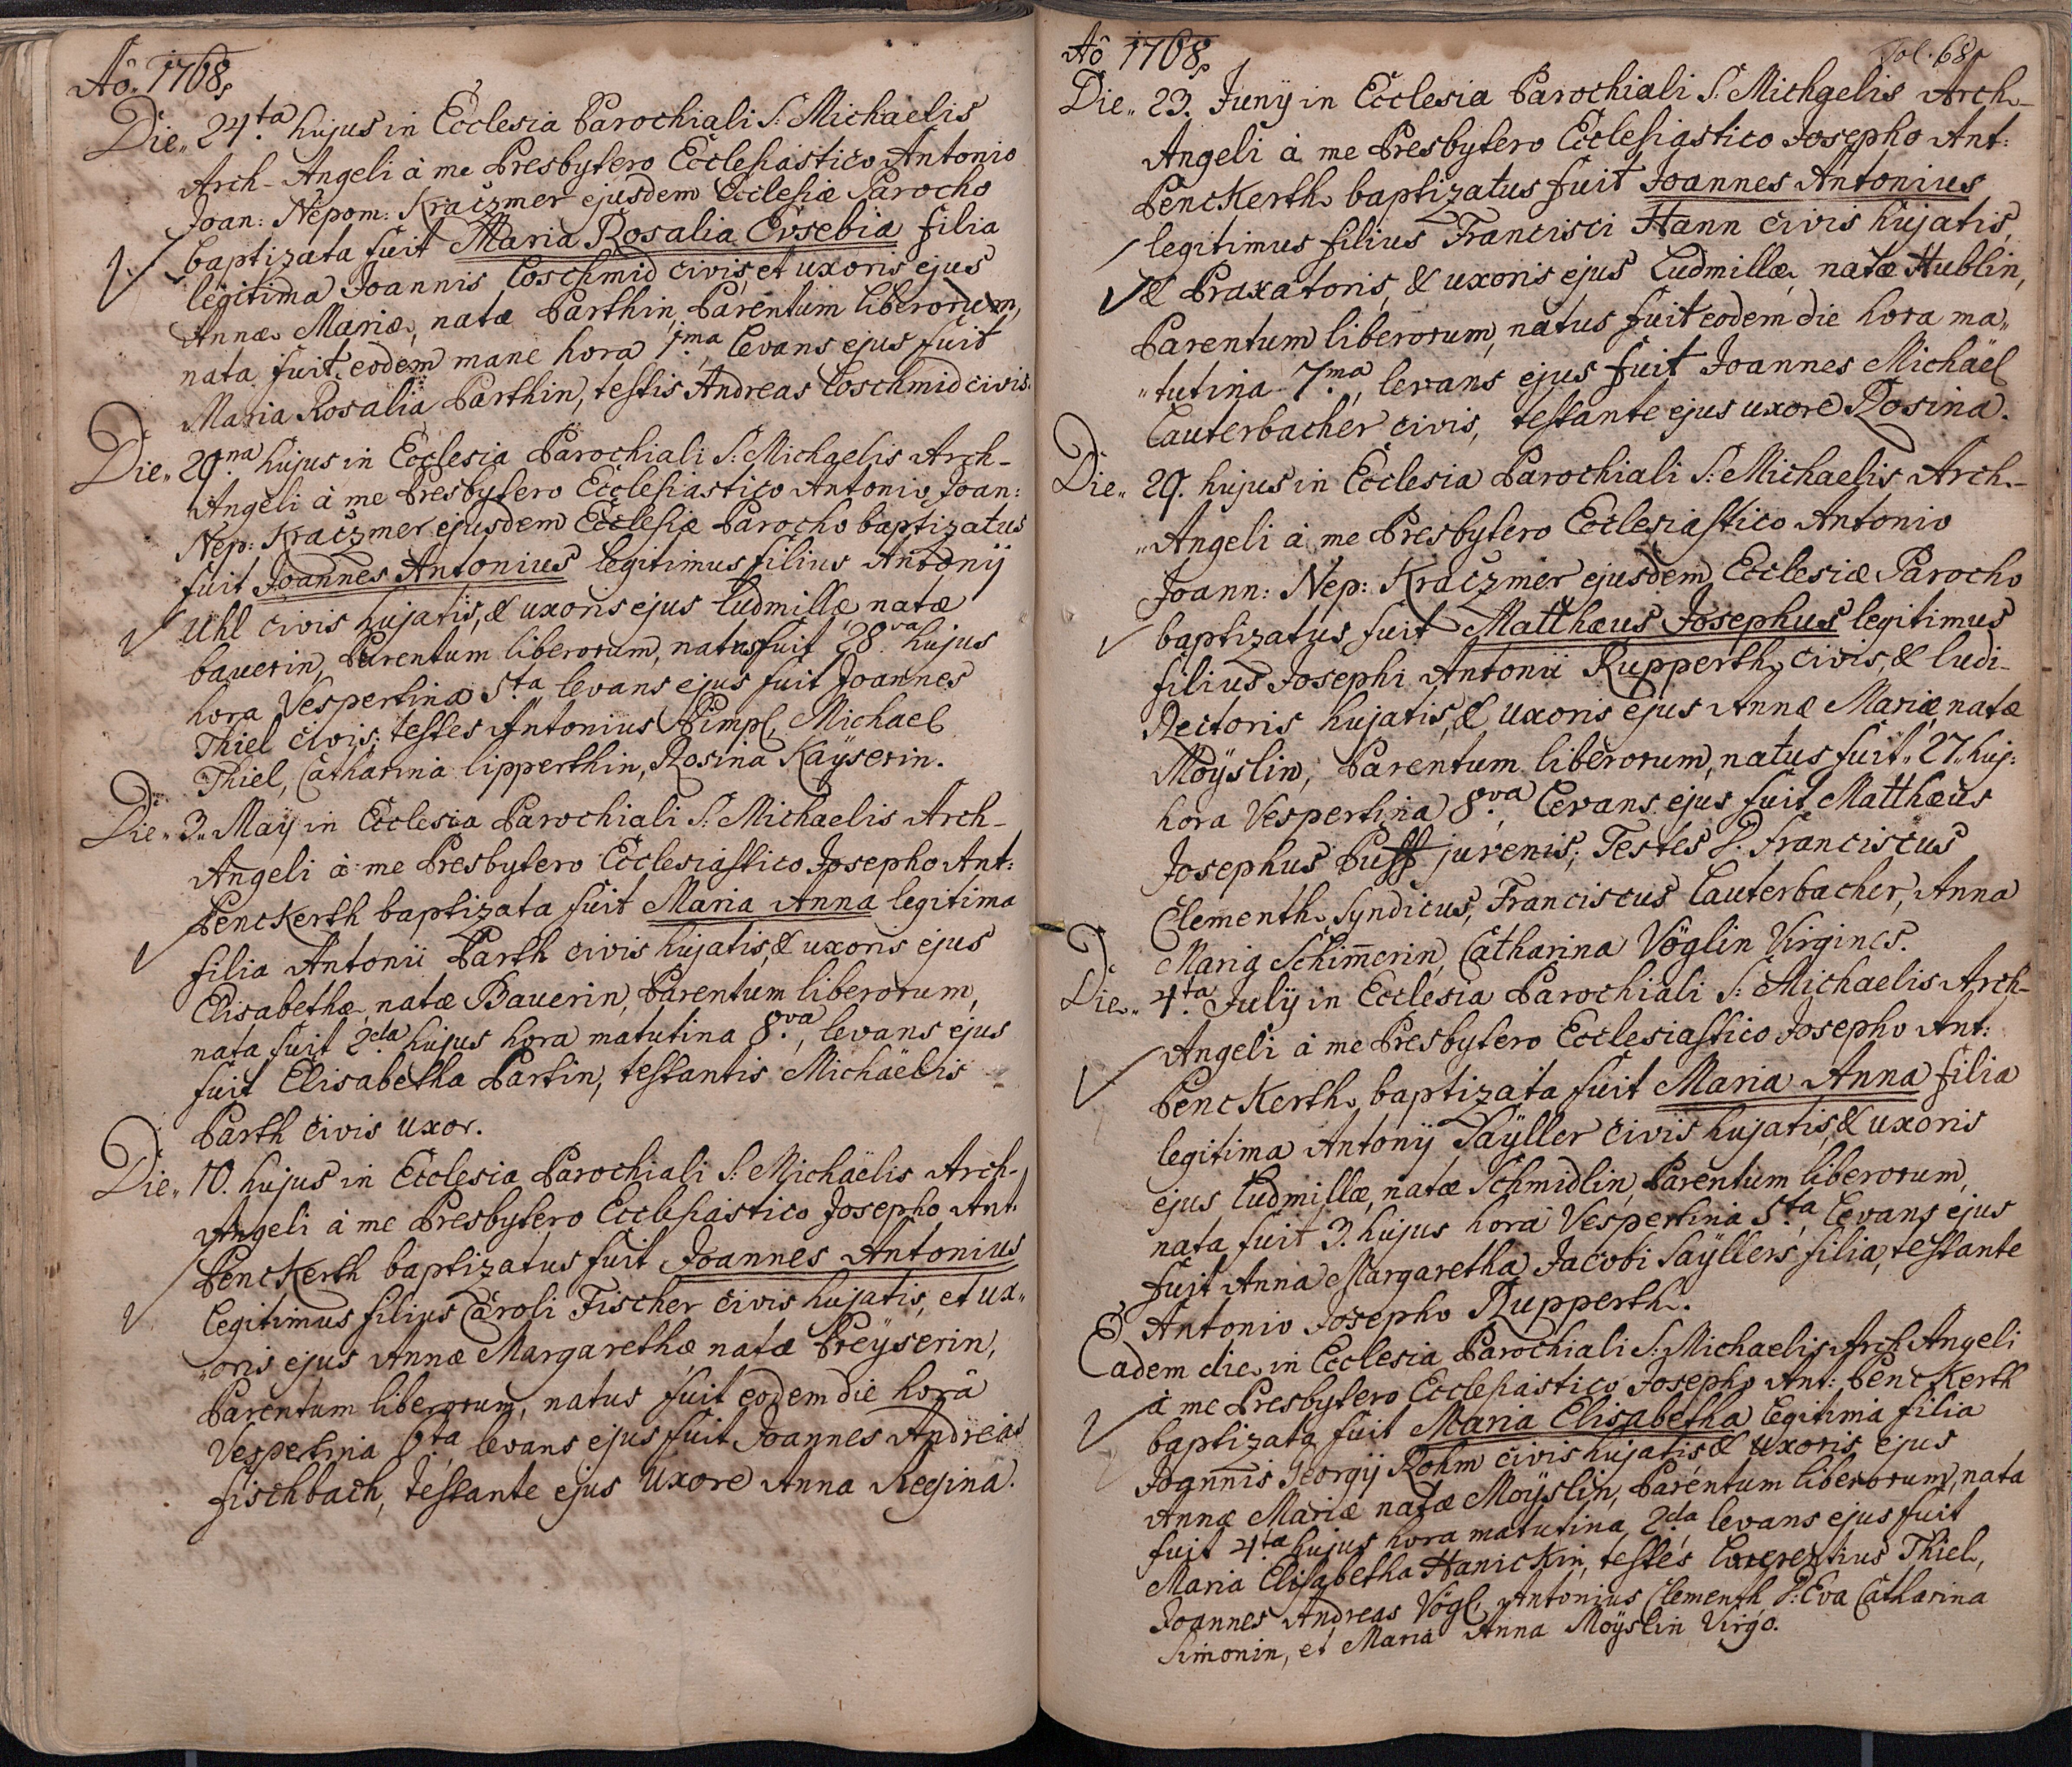 Aô. 1768.
Die„ 24.ta hujus in Ecclesia Parochiali S: Michaelis
Arch-Angeli à me Presbytero Ecclesiastico Antonio
Joan: Nepom: Kraczmer ejusdem Ecclesiæ Parocho
baptizata fuit Maria Rosalia Eusebia filia
legitima Joannis Loschmid civis, et uxoris ejus
Annæ Mariæ, natæ Parthin, Parentum liberorum,
nata fuit eodem mane hora 1.ma, levans ejus fuit
Maria Rosalia Parthin, testis Andreas Loschmid civis.
Die„ 29.na hujus in Ecclesia Parochiali S: Michaelis Arch-
Angeli à me Presbytero Ecclesiastico Antonio Joan:
Nep: Kraczmer ejusdem Ecclesiæ Parocho baptizatus
fuit Joannes Antonius legitimus filius Antonij
Uhl civis hujatis, & uxoris ejus Ludmillæ natæ
bauerin, Parentum liberorum, natus fuit 28.va hujus
hora Vespertina 5.ta levans ejus fuit Joannes
Thiel civis; testes Antonius Pimpl, Michael
Thiel, Catharina lipperthin, Rosina Kaÿserin.
Die„ 3„ Maÿ in Ecclesia Parochiali S: Michaelis Arch-
Angeli à me Presbytero Ecclesiastico Josepho Ant:
Penckerth baptizata fuit Maria Anna legitima
filia Antonii Parth civis hujatis, & uxoris ejus
Elisabethæ, natæ Bauerin, Parentum liberorum,
nata fuit 2.da hujus hora matutina 8.va, levans ejus
fuit Elisabetha Partin, testantis Michaëlis
Parth civis uxor.
Die„ 10. hujus in Ecclesia Parochiali S: Michaëlis Arch-
Angeli à me Presbytero Ecclesiastico Josepho Ant:
Penckerth baptizatus fuit Joannes Antonius
legitimus filius Caroli Fischer civis hujatis, et ux„
„oris ejus Annæ Margarethæ natæ Preÿserin,
Parentum liberorum, natus fuit eodem die horâ
Vespertina 6.ta levans ejus fuit Joannes Andreas
fischbach, testante ejus Uxore Anna Regina.
Aô 1768.
Fol. 68.
Die„ 23. Junÿ in Ecclesia Parochiali S: Michaelis Arch-
Angeli à me Presbytero Ecclesiastico Josepho Ant:
Penckerth baptizatus fuit Joannes Antonius
legitimus filius Francisci Hann civis hujatis,
& Praxatoris, & uxoris ejus Ludmillæ, natæ Hublin,
Parentum liberorum, natus fuit eodem die hora ma„
„tutina 7.ma, levans ejus fuit Joannes Michaël
Lauterbacher civis, testante ejus uxore Rosina.
Die„ 29. hujus in Ecclesia Parochiali S: Michaelis Arch-
„Angeli à me Presbytero Ecclesiastico Antonio
Joann: Nep: Kraczmer ejusdem Ecclesiæ Parocho
baptizatus fuit Matthæus Josephus legitimus
filius Josephi Antonii Rupperth civis, & ludi-
Rectoris hujatis, & uxoris ejus Annæ Mariæ, natæ
Moÿslin, Parentum liberorum, natus fuit„ 27„ huj:
hora Vespertina 8.va, levans ejus fuit Matthæus
Josephus Puff juvenis; Testes P: Franciscus
Clementh Syndicus, Franciscus Lauterbacher, Anna
Maria Schim̄erin, Catharina Vöglin Virgines.
Die„ 4.ta Julÿ in Ecclesia Parochiali S: Michaelis Arch-
Angeli à me Presbytero Ecclesiastico Josepho Ant:
Penckerth baptizata fuit Maria Anna filia
legitima Antonÿ Saÿller civis hujatis, & uxoris
ejus Ludmillæ, natæ Schmidlin, Parentum liberorum,
nata fuit 3. hujus hora Vespertina 5.ta, levans ejus
fuit Anna Margaretha Jacobi Saÿllers filia, testante
Antonio Josepho Rupperth.
Eadem die in Ecclesia Parochiali S: Michaelis Arch Angeli
à me Presbytero Ecclesiastico Josepho Ant: Penckerth
baptizata fuit Maria Elisabetha legitima filia
Joannis Georgij Rohm civis hujatis, & uxoris ejus
Annæ Mariæ natæ Moÿslin, Parentum liberorum, nata
fuit 4.ta hujus hora matutina 2.da, levans ejus fuit
Maria Elisabetha Hanickin, testes Thiel,
Joannes Andreas Vögl, Antonius Clementh P: Eva Catharina
Simonin, et Maria Anna Moÿslin Virgo.